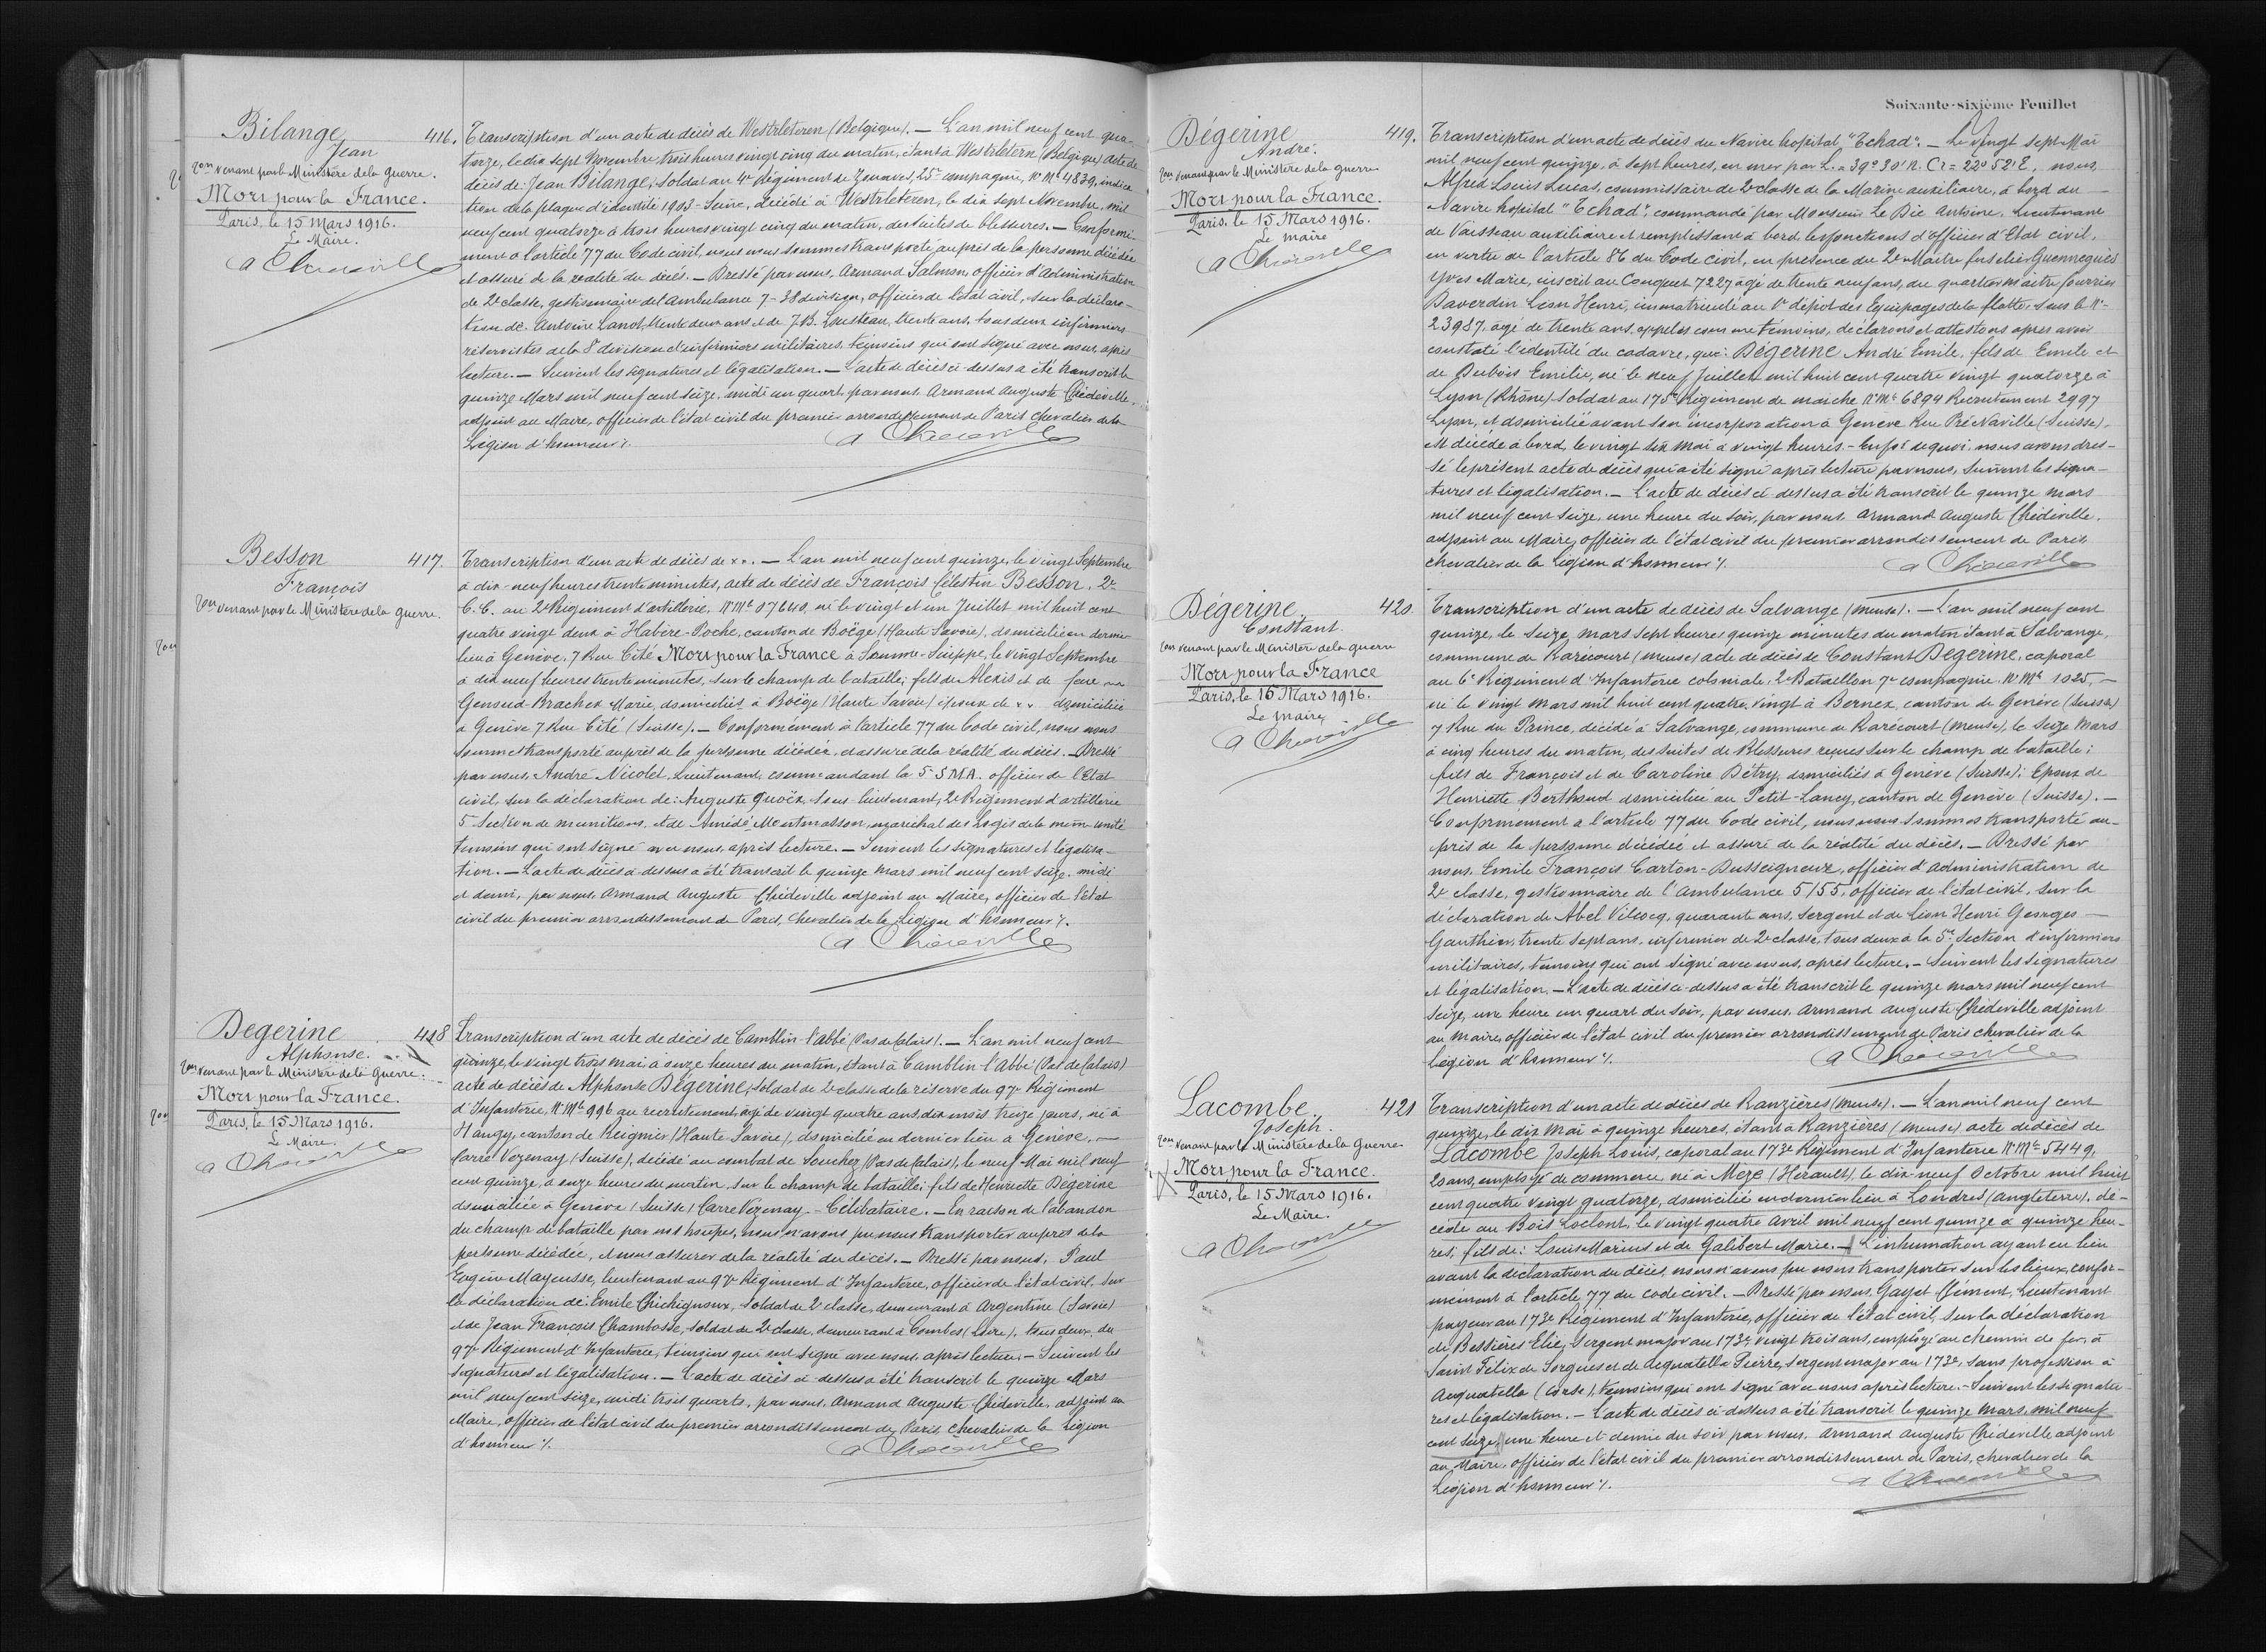 Bilange 416.
Jean
Von venant par le Ministère de la Guerre.
Mort pour la France.
Paris, le 15 Mars 1916.
Le Maire.
A Chédeville
Transcription d'un acte de décès de Westvleteren (Belgique). — L'an mil neuf cent qua-
torze, le dix sept Novembre trois heures vingt cinq du matin, étant à Westvletern (Belgique) acte de
décès de: Jean Bilange, Soldat au 4e Régiment de Zouaves, 25e compagnie, No Mle 4839, indica
tion de la plaque d'identité 1903-Seine, décédé à Westvleteren, le dix sept Novembre, mil
neuf cent quatorze à trois heures vingt cinq du matin, des suites de blessures. — Conformé-
ment à l'article 77 du Code civil, nous nous sommes transporté auprès de la personne décédée
et assuré de la réalité du décès. — Dressé par nous, Armand Salmon, officier d'Administration
de 2e classe, gestionnaire de l'ambulance 7-38 division, officier de l'état civil, sur la déclara-
tion de: Antoine Lanot, trente deux ans et de J.B. Lousteau, trente ans, tous deux infirmiers
réservistes de la 8e division d'infirmiers militaires, témoins qui ont signé avec nous, après
lecture. — Suivent les signatures et légalisation. — L'acte de décès ci-dessus a été transcrit le
quinze Mars mil neuf cent seize, midi un quart, par nous, Armand Auguste Chédeville,
adjoint au Maire, officier de l'état civil du premier arrondissement de Paris Chevalier de la
Légion d'honneur ./.
A Chédeville
Besson 417.
François
Von venant par le Ministère de la Guerre.
Transcription d'un acte de décès de xx. — L'an mil neuf cent quinze, le vingt Septembre
à dix-neuf heures trente minutes, acte de décès de François Célestin Besson, 2e
C.C. au 2e Régiment d'artillerie, No Mle 07640, né le vingt et un Juillet mil huit cent
quatre vingt deux à Habère-Poche, canton de Boëge (Haute Savoie), domicilié en dernier
lieu à Genève, 7 Rue Cité Mort pour la France à Somme-Suippe, le vingt Septembre
à dix neuf heures trente minutes, sur le champ de bataille; fils de Alexis et de feue
Genoud-Prachex Marie, domiciliés à Boëge (Haute Savoie) époux de xx domiciliée
à Genève 7 Rue Cité (Suisse). — Conformément à l'article 77 du Code civil, nous nous
sommes transporté auprès de la personne décédée, et assuré de la réalité du décès. — Dressé
par nous, André Nicolet, Lieutenant, commandant la 5 S.M.A. officier de l'Etat
civil, sur la déclaration de: Auguste Quoëx, Sous-lieutenant, 2e Régiment d'artillerie
5 Section de munitions, et de Amédé Montmasson, maréchal des Logis de la même unité
témoins qui ont signé avec nous, après lecture. — Suivent les signatures et légalisa-
tion. — L'acte de décès ci-dessus a été transcrit le quinze Mars mil neuf cent seize, midi
et demi, par nous, Armand Auguste Chédeville adjoint au Maire, officier de l'état
civil du premier arrondissement de Paris, Chevalier de la Légion d'honneur ./.
A Chédeville
Degerine 418
Alphonse.
Von venant par le Ministère de la Guerre.
Mort pour la France.
Paris, le 15 Mars 1916.
Le Maire.
A Chédeville
Transcription d'un acte de décès de Camblin-l'abbé (Pas de Calais). — L'an mil neuf cent
quinze, le vingt trois mai, à onze heures du matin, étant à Camblin-l'Abbé (Pas de Calais)
acte de décès de Alphonse Dégerine, soldat de 2e classe de la réserve du 97e Régiment
d'Infanterie, No Mle 996 au recrutement, âgé de vingt quatre ans, dix mois, treize jours, né à
Nangy, canton de Reignier (Haute-Savoie), domicilié en dernier lieu à Genève, —
Carré Vezenay (Suisse), décédé au combat de Souchez (Pas de Calais), le neuf Mai mil neuf
cent quinze, à onze heures du matin, sur le champ de bataille; fils de Henriette Degerine
domiciliée à Genève (Suisse) Carré Vezenay. — Célibataire. — En raison de l'abandon
du champ de bataille par nos troupes, nous n'avons pu nous transporter auprès de la
personne décédée, et nous assurer de la réalité du décès. — Dressé par nous, Paul
Eugène Mayeusse, lieutenant au 97e Régiment d'Infanterie, officier de l'état civil, sur
la déclaration de: Emile Chichignoux, soldat de 2e classe, demeurant à Argentine (Savoie)
et de Jean François Chambosse, soldat de 2e classe, demeurant à Combes (Loire), tous deux du
97e Régiment d'Infanterie, témoins qui ont signé avec nous, après lecture. — Suivent les
signatures et légalisation. — L'acte de décès ci-dessus a été transcrit le quinze Mars
mil neuf cent seize, midi trois quarts, par nous, Armand Auguste Chédeville, adjoint au
Maire, officier de l'état civil du premier arrondissement de Paris, Chevalier de la Légion
d'honneur ./.
A Chédeville
Soixante-sixième Feuillet
Dégerine 419.
André.
Von venant par le Ministère de la Guerre
Mort pour la France.
Paris, le 15 Mars 1916.
Le maire
A Chédeville
Transcription d'un acte de décès du Navire hôpital, "Tchad". — Le vingt Sept Mai
mil neuf cent quinze, à sept heures, en mer par L. = 39° 30' N. Cr = 22° 52' E, nous,
Alfred Louis Lucas, commissaire de 2e classe de la Marine auxiliaire, à bord du
Navire hôpital "Tchad", commandé par Monsieur Le Bie Antoine, Lieutenant
de Vaisseau auxiliaire et remplissant à bord les fonctions d'officier d'Etat civil,
en vertu de l'article 86 du Code civil, en présence du 2e Maître fusilier Guennegués
Yves Marie, inscrit au Conquet 7227 âgé de trente neuf ans, du quartier maître fourrier
Daverdin Léon Henri, immatriculé au 1er dépôt des Equipages de la flotte, sous le No
23987, âgé de trente ans, appelés comme témoins, déclarons et attestons après avoir
constaté l'identité du cadavre, que: Dégerine André Emile, fils de Emile et
de Dubois Emilie, né le neuf Juillet mil huit cent quatre vingt quatorze à
Lyon (Rhône) Soldat au 175e Régiment de marche No Mle 6894 Recrutement 2997
Lyon, et domicilié avant son incorporation à Genève Rue Pré Naville (Suisse),
est décédé à bord, le vingt six Mai à vingt heures. — En foi de quoi, nous avons dres-
sé le présent acte de décès qui a été signé après lecture par nous, Suivent les signa-
tures et légalisation. — L'acte de décès ci-dessus a été transcrit le quinze Mars
mil neuf cent seize, une heure du soir, par nous Armand Auguste Chédeville,
adjoint au Maire, officier de l'état civil du premier arrondissement de Paris,
chevalier de la Légion d'honneur ./.
A Chédeville
Dégerine 420.
Constant.
Von venant par le Ministère de la Guerre
Mort pour la France
Paris, le 16 Mars 1916.
Le maire
A Chédeville
Transcription d'un acte de décès de Salvange (Meuse). — L'an mil neuf cent
quinze, le seize mars sept heures quinze minutes du matin étant à Salvange,
commune de Rarécourt (Meuse) acte de décès de Constant Dégerine, caporal
au 6e Régiment d'Infanterie coloniale, 2e Bataillon 7e compagnie, No Mle 1025, —
né le vingt mars mil huit cent quatre vingt à Bernex, canton de Genève (Suisse)
7 Rue du Prince, décédé à Salvange, commune de Rarécourt (Meuse), le seize Mars
à cinq heures du matin, des suites de Blessures reçues sur le champ de bataille;
fils de François et de Caroline Détry, domiciliés à Genève (Suisse); Epoux de
Henriette Berthoud domiciliée au Petit-Lancy, canton de Genève (Suisse). —
Conformément à l'article 77 du Code civil, nous nous sommes transporté au-
près de la personne décédée et assuré de la réalité du décès. — Dressé par
nous, Emile François Carton-Dusseigneux, officier d'administration de
2e classe, gestionnaire de l'ambulance 5/55, officier de l'état civil, sur la
déclaration de Abel Vilcocq, quarante ans, sergent et de Léon Henri Georges —
Gauthier, trente sept ans, infirmier de 2e classe, tous deux à la 5e Section d'infirmiers
militaires, témoins qui ont signé avec nous, après lecture. — Suivent les signatures
et légalisation. — L'acte de décès ci-dessus a été transcrit le quinze mars mil neuf cent
seize, une heure un quart du soir, par nous, Armand Auguste Chédeville adjoint
au Maire, officier de l'état civil du premier arrondissement de Paris chevalier de la
Légion d'honneur ./.
A Chédeville
Lacombe 421
Joseph.
Von venant par le Ministère de la Guerre
Mort pour la France.
Paris, le 15 Mars 1916.
Le Maire.
A Chédeville
Transcription d'un acte de décès de Ranzières (Meuse). — L'an mil neuf cent
quinze, le dix Mai à quinze heures, étant à Ranzières (Meuse) acte de décès de
Lacombe Joseph Louis, caporal au 173e Régiment d'Infanterie No Mle 5449,
20 ans, employé de commerce, né à Mèze (Hérault), le dix-neuf Octobre mil huit
cent quatre vingt quatorze, domicilié en dernier lieu à Londres (Angleterre), dé-
cédé au Bois Loclont, le vingt quatre Avril mil neuf cent quinze à quinze heu-
res, fils de: Louis Marius et de Galibert Marie. — L'inhumation ayant eu lieu
avant la déclaration du décès, nous n'avons pu nous transporter sur les lieux, confor-
mément à l'article 77 du code civil. — Dressé par nous, Gayet Clément, Lieutenant
payeur au 173e Régiment d'Infanterie, officier de l'état civil, sur la déclaration
de Bessières Elie, Sergent major au 173e, vingt trois ans, employé au chemin de fer, à
Saint Félix de Sorgues et de Acquatella Pierre, Sergent major au 173e, sans profession à
Acquatella (Corse), témoins qui ont signé avec nous après lecture. — Suivent les signatu-
res et légalisation. — L'acte de décès ci-dessus a été transcrit le quinze Mars, mil neuf
cent seize, une heure et demie du soir par nous, Armand Auguste Chédeville adjoint
au Maire, officier de l'état civil du premier arrondissement de Paris, chevalier de la
Légion d'honneur ./.
A Chédeville